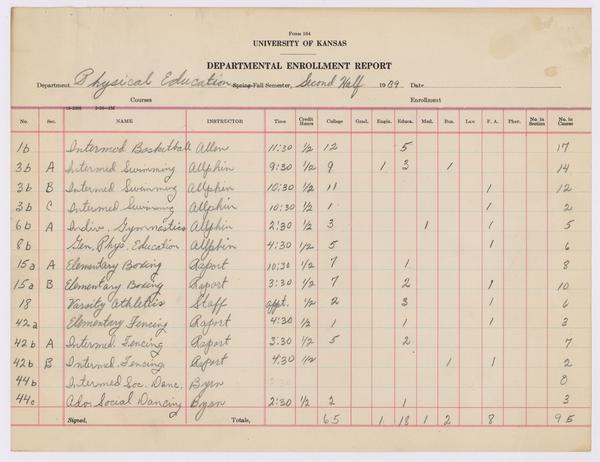 Form 104
UNIVERSITY OF KANSAS
DEPARTMENTAL ENROLLMENT REPORT
Department Physical Education Spring-Fall Semester, Second Half 1939 Date
Courses Enrollment
No. Sec. NAME INSTRUCTOR Time Credit Hours College Grad. Engin. Educa. Med. Bus. Law F. A. Phar. No. in Section No. in Course
1b Intermed Basketball Allen 11:30 1/2 12 5 17
3b A Intermed Swimming Allphin 9:30 1/2 9 1 3 1 14
3b B Intermed Swimming Allphin 10:30 1/2 11 1 12
3b C Intermed Swimming Allphin 10:30 1/2 1 1 2
6b A Indiv. Gymnastics Allphin 2:30 1/2 3 1 1 5
8b Gen. Phys. Education Allphin 4:30 1/2 5 1 6
15a A Elementary Boxing Raport 10:30 1/2 7 1 8
15a B Elementary Boxing Raport 3:30 1/2 7 2 1 10
18 Varsity Athletics Staff appt. 1/2 2 3 1 6
42a Elementary Fencing Raport 4:30 1/2 1 1 1 3
42b A Intermed. Fencing Raport 3:30 1/2 5 2 7
42b B Intermed. Fencing Raport 4:30 1/2 1 1 2
44b Intermed Soc. Danc. Bryan 0
44c Adv. Social Dancing Bryan 2:30 1/2 2 1 3
Signed, Totals, 65 1 18 1 2 8 95